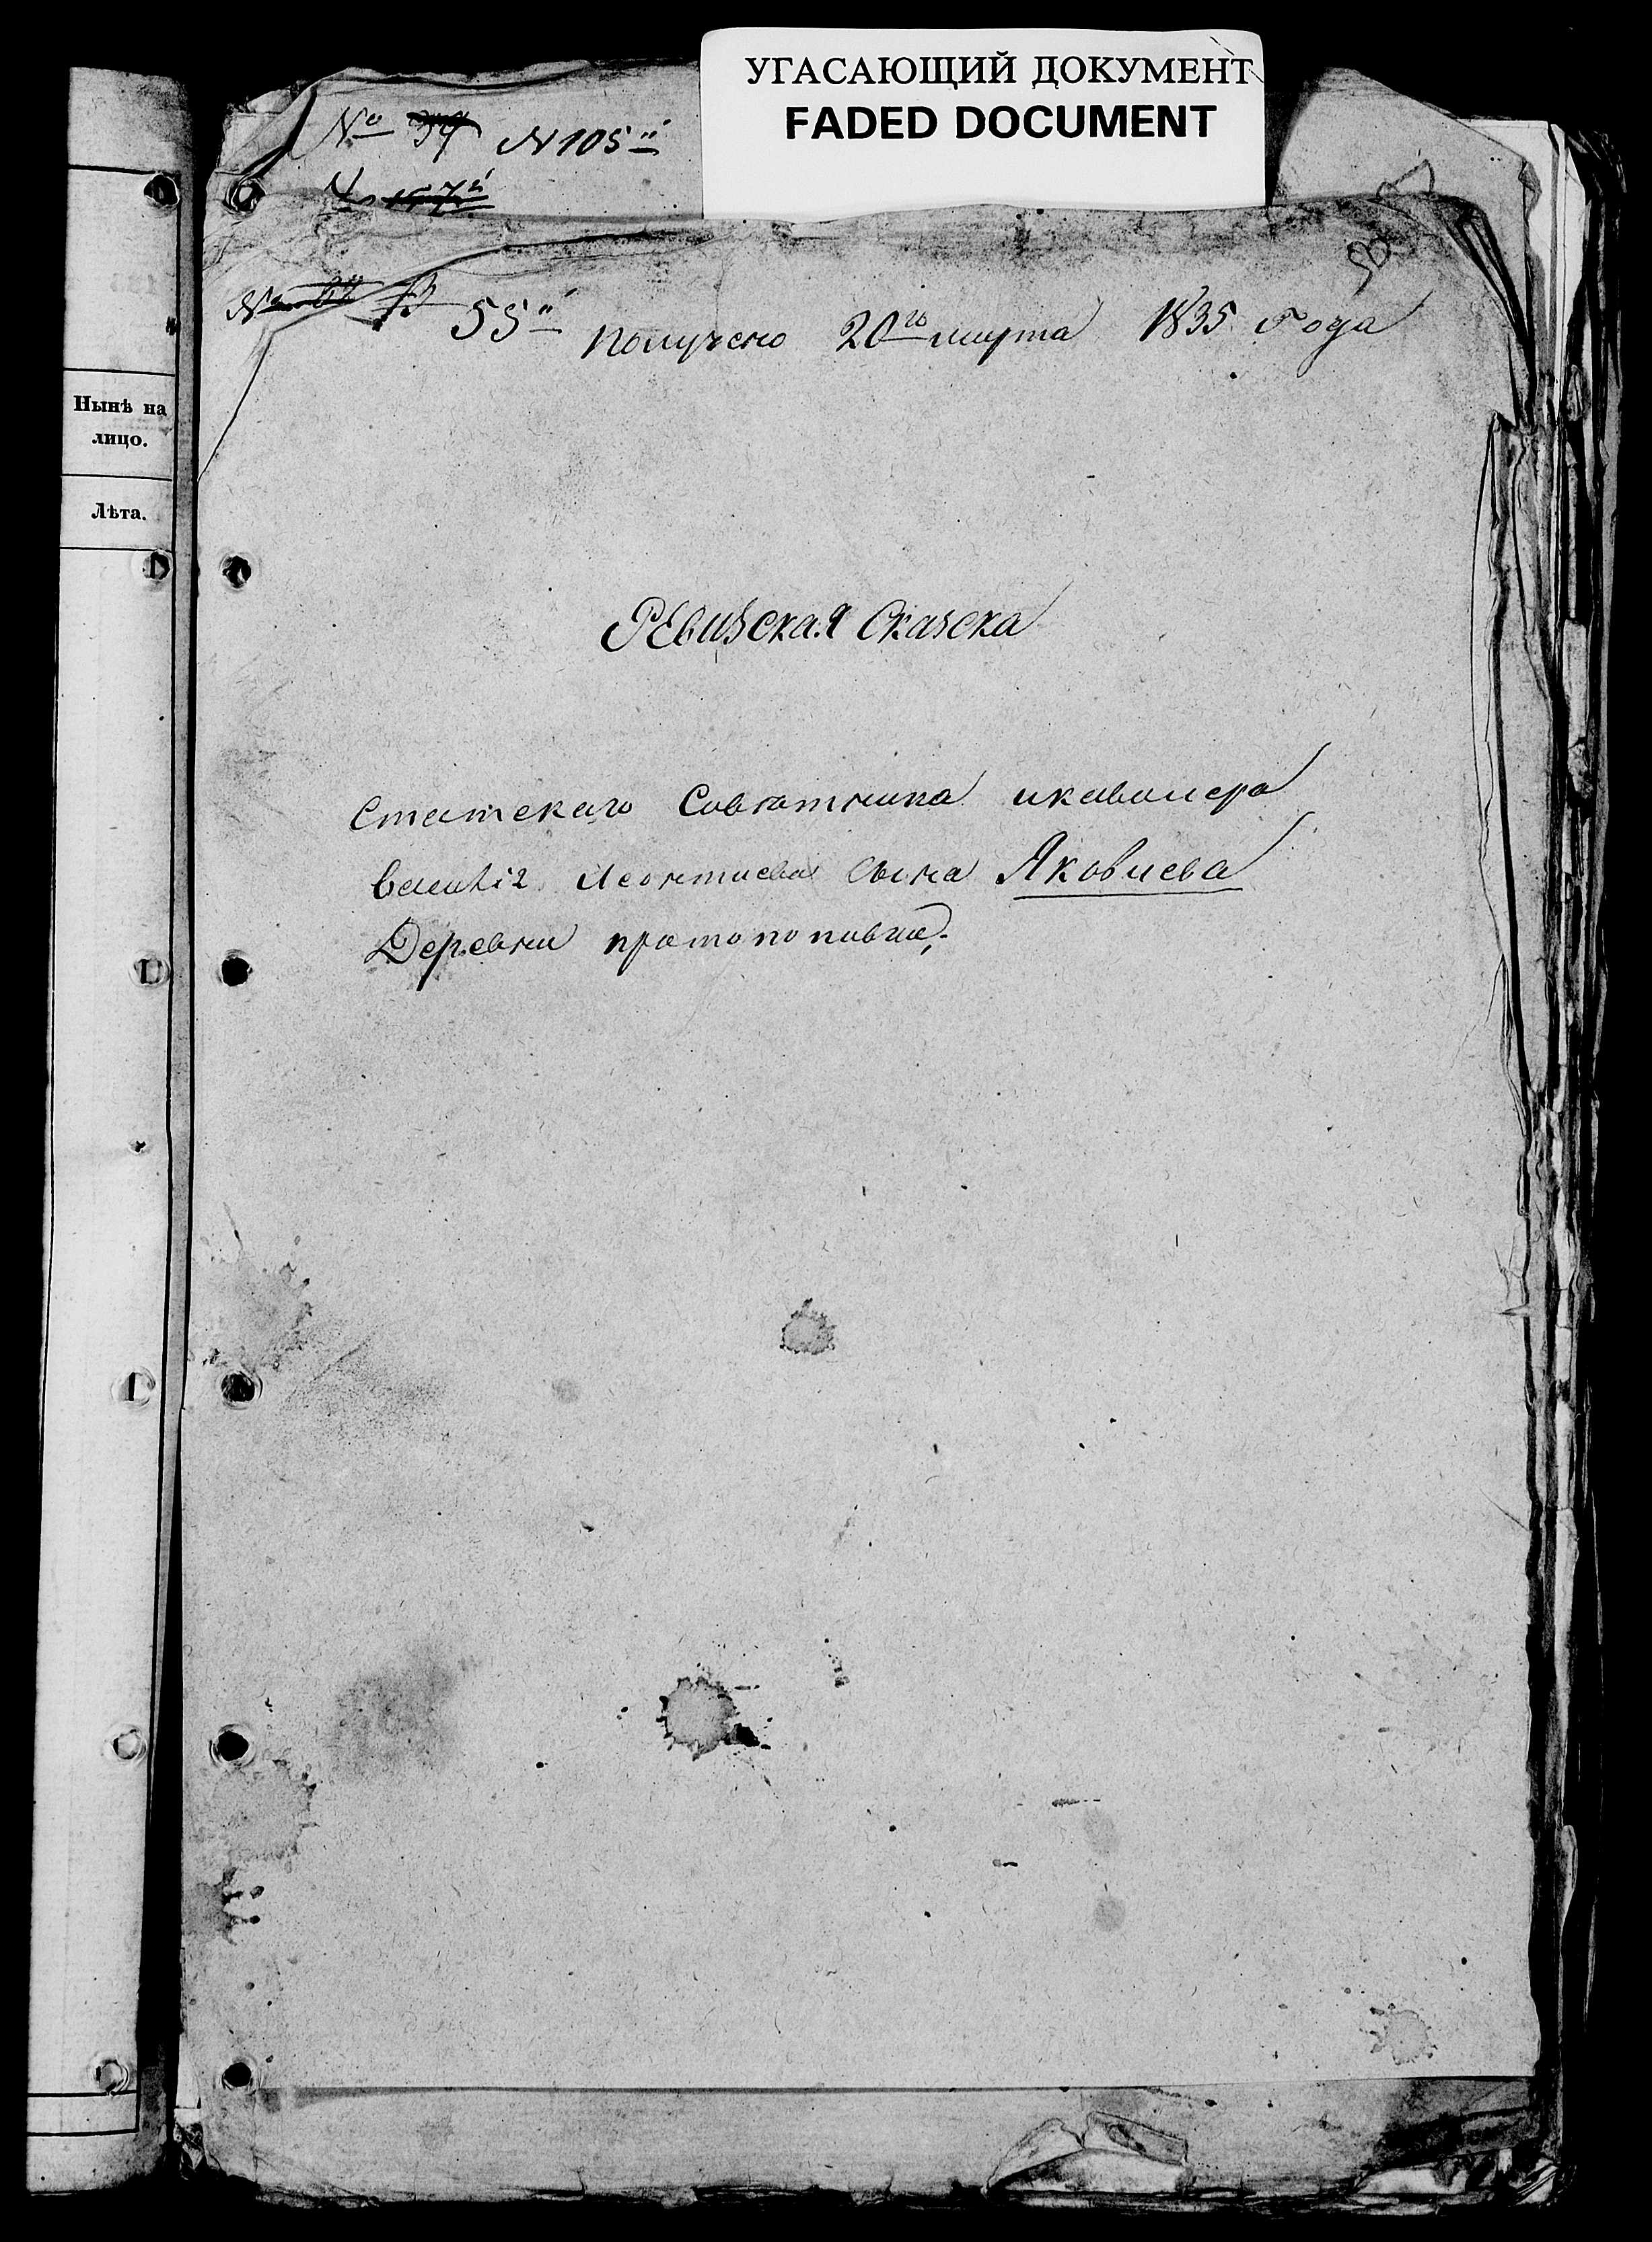 УГАСАЮЩИЙ ДОКУМЕНТ
FADED DOCUMENT
№ 39 N 105й
№ 157й
№ 64 55й получено 20го марта 1835 Года
Нынѣ на
лицо.
Лѣта.
РЕвизская Сказска
Статскаго Совѣтника икавалера
Леонтиева Сына Яковлева
Деревни протопоповки,